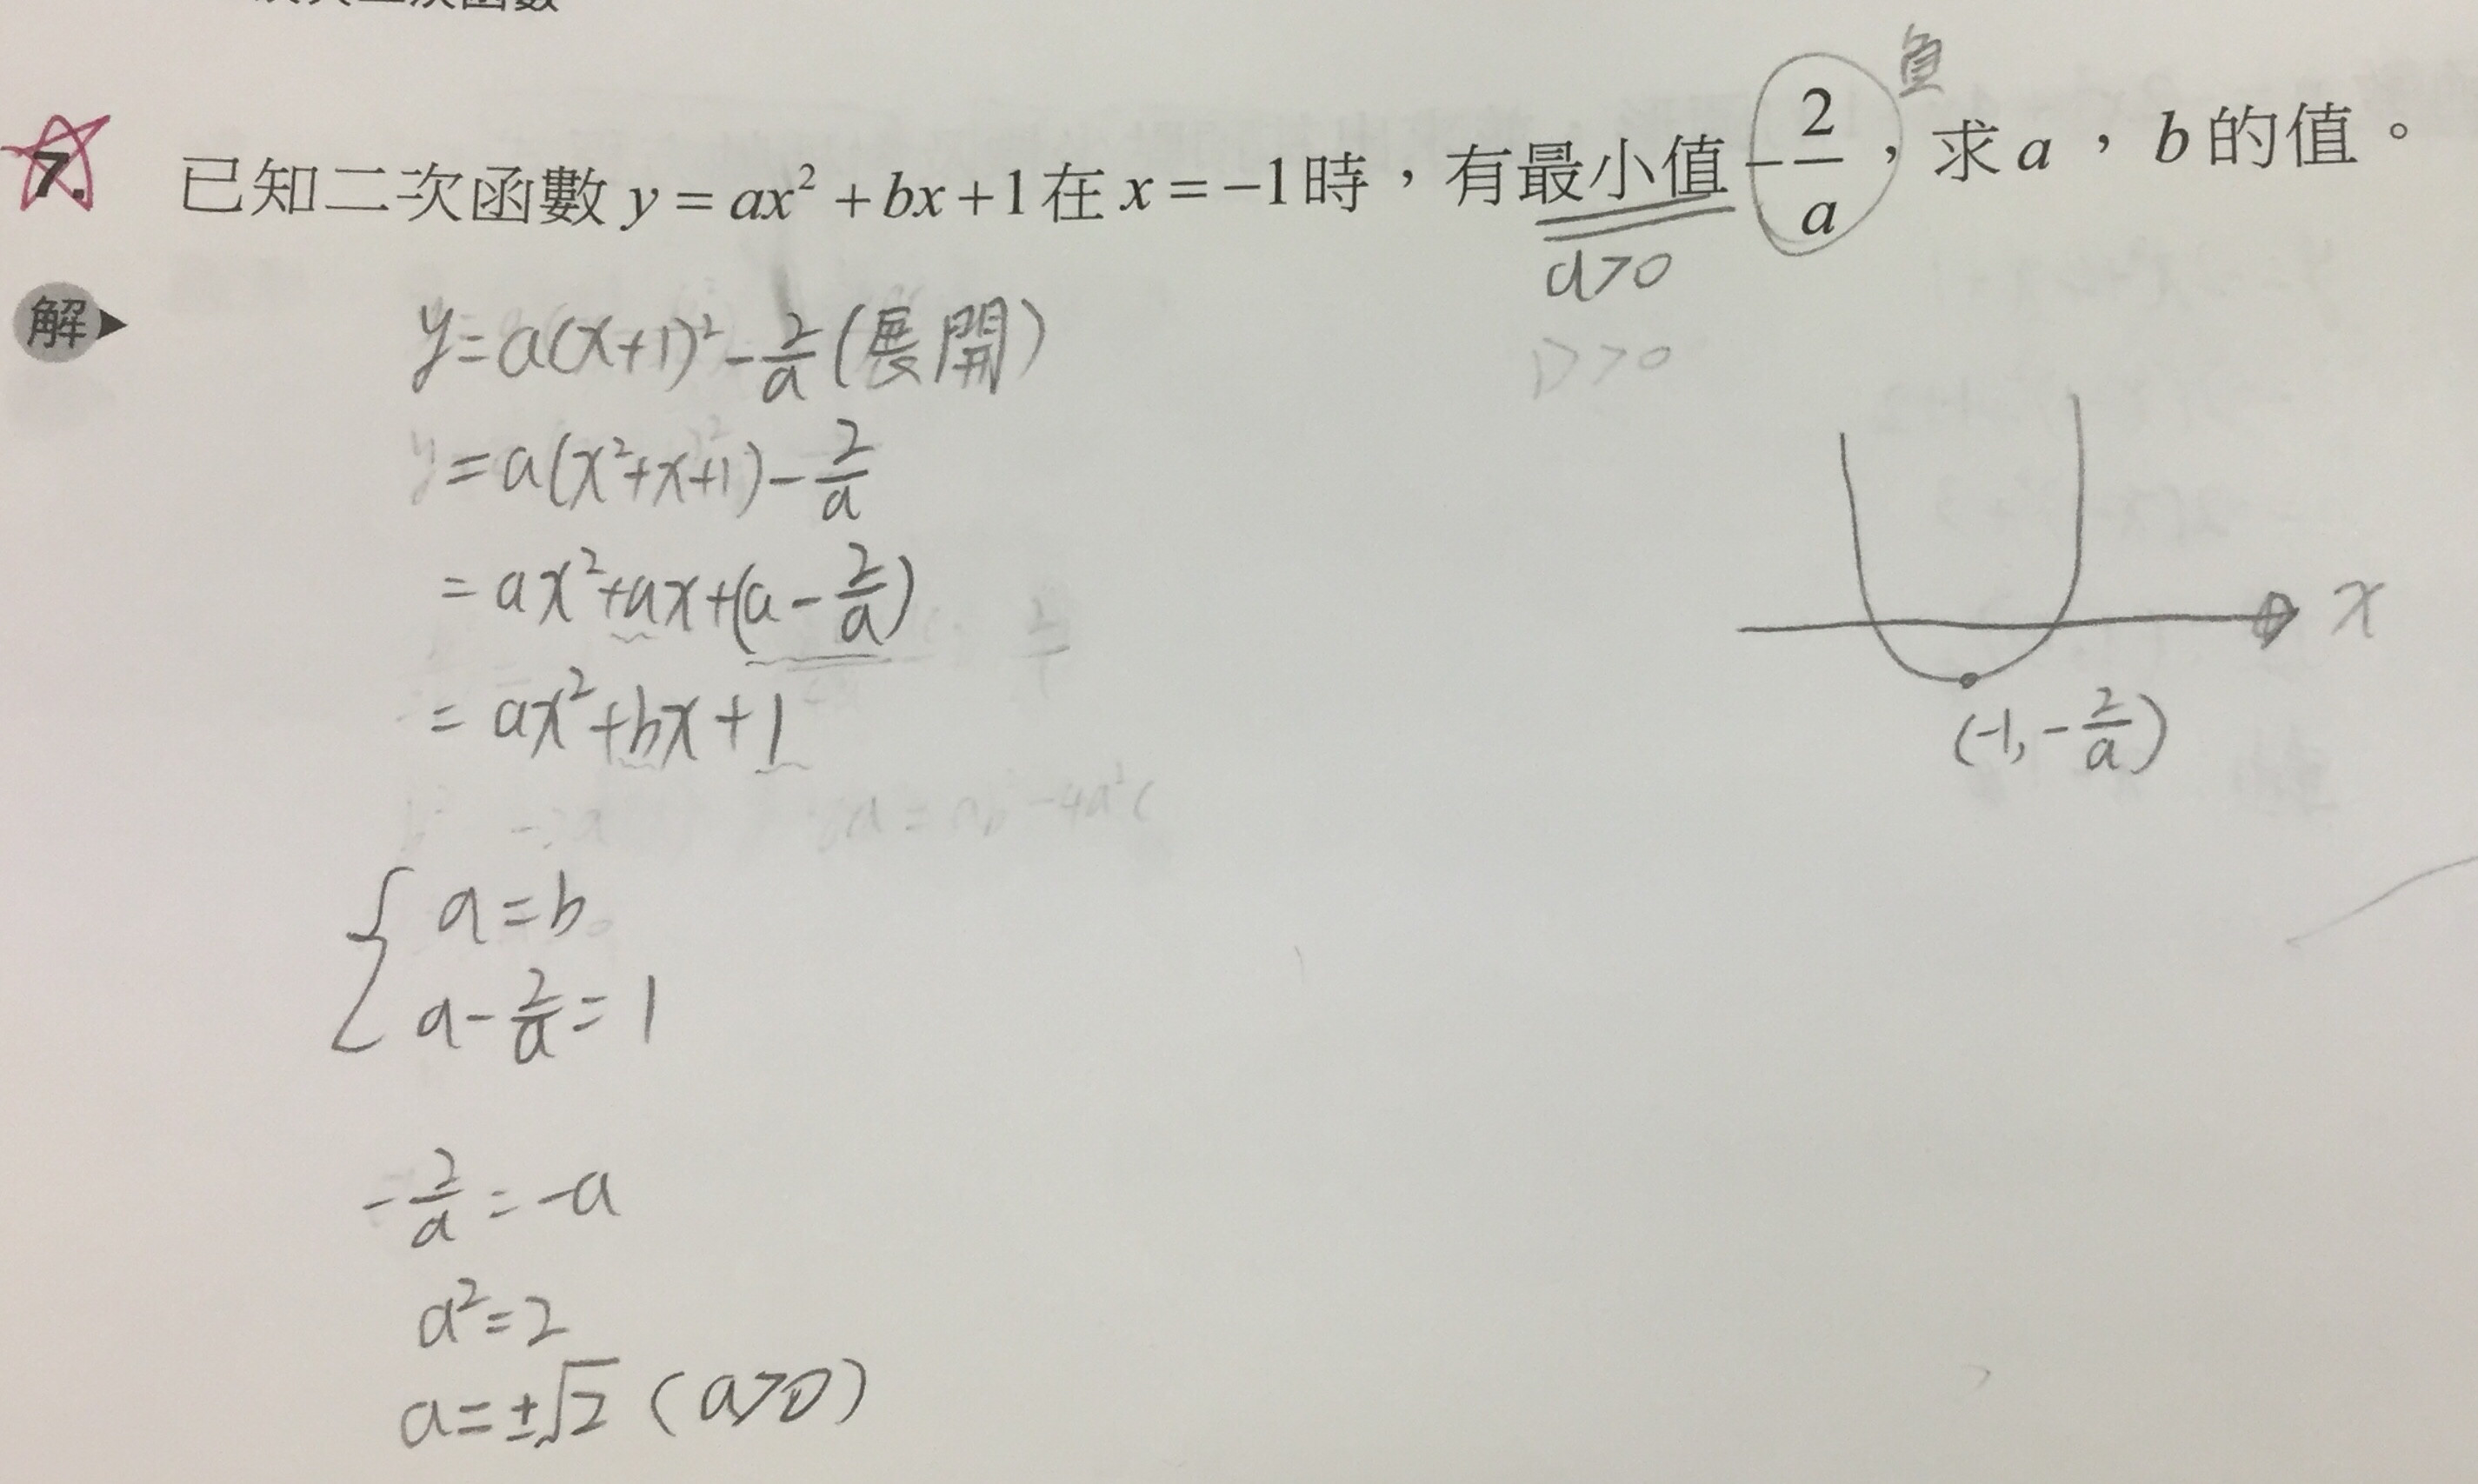 二次函數
負
7. 已知二次函數 y = ax² + bx + 1 在 x = −1 時，有最小值 −2/a，求 a，b 的值。
a>0
D>0
解▶ y = a(x+1)² − 2/a (展開)
y = a(x²+x+1) − 2/a
= ax²+ax+(a − 2/a)
= ax²+bx+1
x
(-1, −2/a)
a = b
a − 2/a = 1
− 2/a = −a
a² = 2
a = ±√2 (a>0)